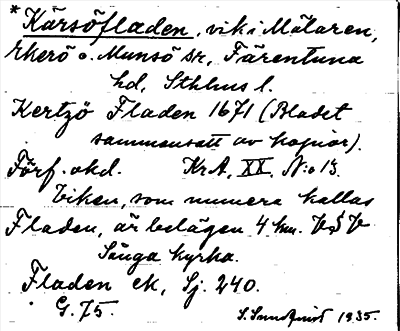 * Kärsöfladen, vik i Mälaren,
Ekerö o. Munsö sr, Färentuna
hd, Sthlms l.
Kertzö Fladen 1671 (Bladet
sammansatt av kopior).
Förf. okd. KrA, XX, N:o 13.
Viken, som numera kallas
Fladen, är belägen 4 km. VSV
Sånga kyrka.
Fladen ek, Sj. 240.
G. 75.
S. Sundqvist 1935.